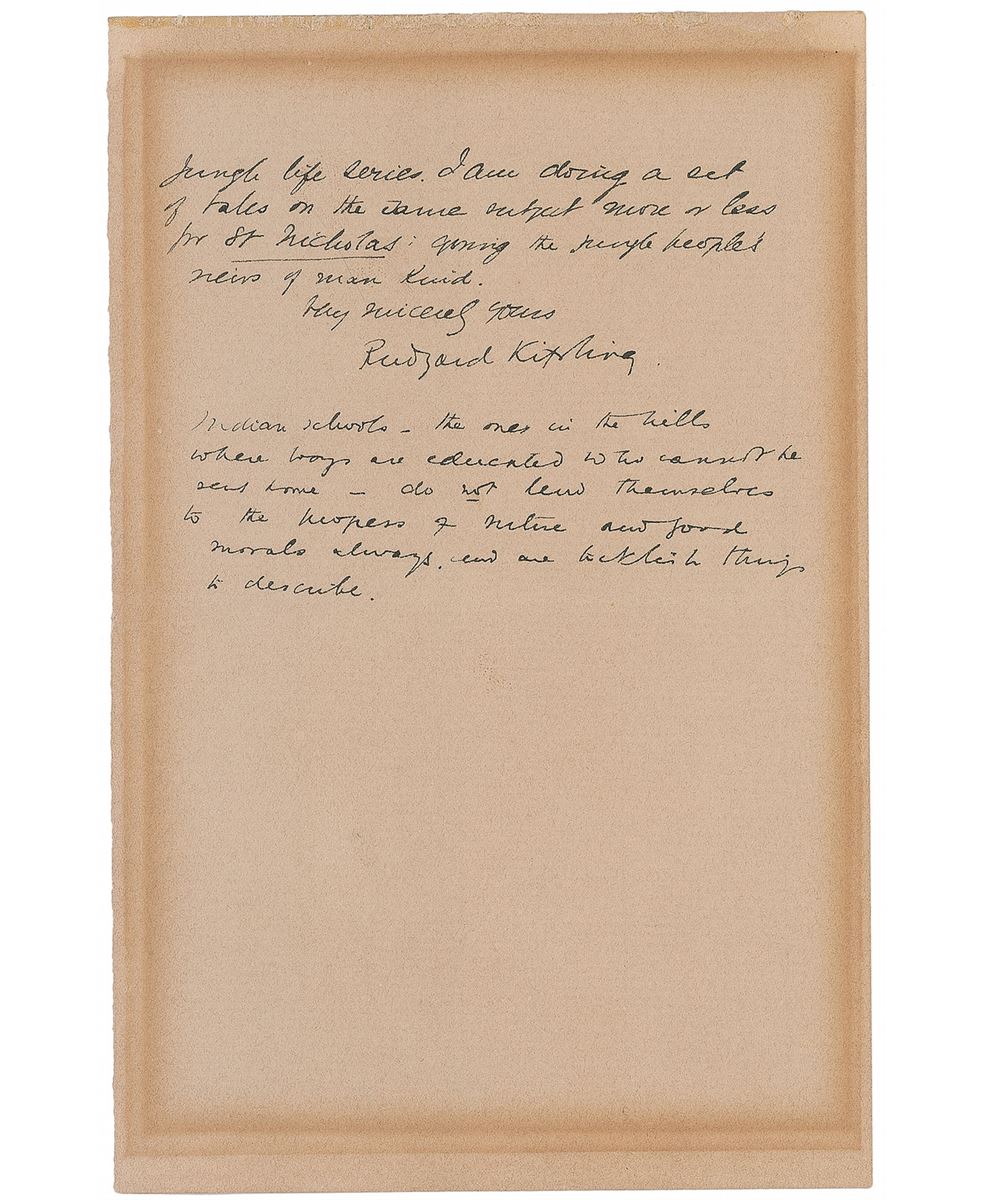 Jungle life series. I am doing a set
of tales on the same subject more or less
for St Nicholas: giving the jungle people's
views of man kind.
Very sincerely yours
Rudyard Kipling.
Indian schools – the ones in the hills
where boys are educated who cannot be
sent home – do not lend themselves
to the of and good
morals always, and are ticklish things
to describe.